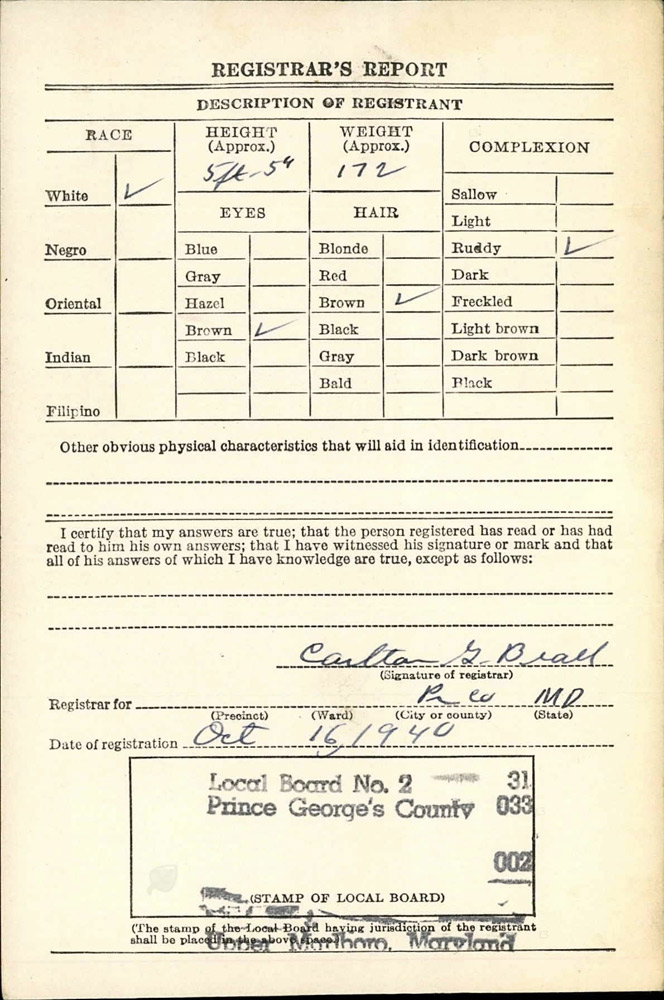 REGISTRAR'S REPORT
DESCRIPTION OF REGISTRANT
RACE
HEIGHT
(Approx.)
WEIGHT
(Approx.)
COMPLEXION
5ft-5"
172
White ✓
Sallow
EYES
HAIR
Light
Negro
Blue
Blonde
Ruddy ✓
Gray
Red
Dark
Oriental
Hazel
Brown ✓
Freckled
Brown ✓
Black
Light brown
Indian
Black
Gray
Dark brown
Bald
Black
Filipino
Other obvious physical characteristics that will aid in identification
I certify that my answers are true; that the person registered has read or has had
read to him his own answers; that I have witnessed his signature or mark and that
all of his answers of which I have knowledge are true, except as follows:
Carlton G. Beall
(Signature of registrar)
Registrar for Pr Co MD
(Precinct) (Ward) (City or county) (State)
Date of registration Oct 16, 1940
Local Board No. 2 31
Prince George's County 033
002
(STAMP OF LOCAL BOARD)
(The stamp of the Local Board having jurisdiction of the registrant
shall be placed in the above space.)
Upper Marlboro, Maryland